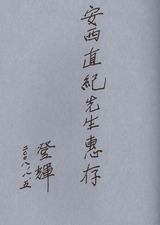 安西直紀先生惠存
登輝
二〇〇八、八、五